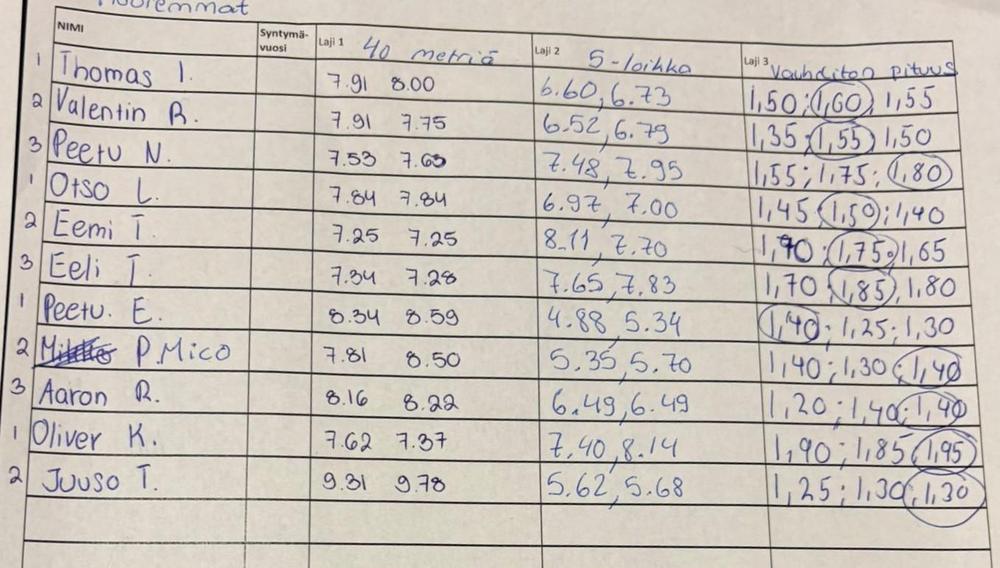 NIMI Syntymä-vuosi Laji 1 40 metriä Laji 2 5-loikka Laji 3 Vauhditon pituus
1 Thomas I. 7.91 8.00 6.60, 6.73 1,50; 1,60, 1,55
2 Valentin R. 7.91 7.75 6.52, 6.79 1,35; 1,55, 1,50
3 Peetu N. 7.53 7.63 7.48, 7.95 1,55; 1,75; 1,80
1 Otso L. 7.84 7.84 6.97, 7.00 1,45, 1,50; 1,40
2 Eemi T. 7.25 7.25 8.11, 7.70 1,70; 1,75, 1,65
3 Eeli T. 7.34 7.28 7.65, 7.83 1,70, 1,85, 1,80
1 Peetu. E. 8.34 8.59 4.88, 5.34 1,40; 1,25; 1,30
2 P.Mico 7.81 8.50 5.35, 5.70 1,40; 1,30; 1,40
3 Aaron R. 8.16 8.22 6.49, 6.49 1,20; 1,40; 1,40
1 Oliver K. 7.62 7.37 7.40, 8.14 1,90; 1,85, 1,95
2 Juuso T. 9.31 9.78 5.62, 5.68 1,25; 1,30, 1,30